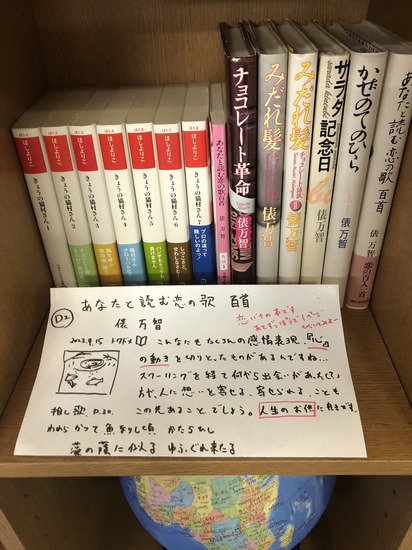 ほしよりこ
きょうの猫村さん 1
ほしよりこ
きょうの猫村さん 2
ほしよりこ
きょうの猫村さん 3
ほしよりこ
きょうの猫村さん 4
ほしよりこ
きょうの猫村さん 5
ほしよりこ
きょうの猫村さん 6
ほしよりこ
きょうの猫村さん 7
プロの道って険しいのよッ!
あなたと読む恋の歌百首 俵 万智
チョコレート革命 俵万智
みだれ髪 チョコレート語訳 俵万智
みだれ髪 チョコレート語訳 II 俵万智
サラダ記念日 sarada kinenbi 俵万智
かぜのてのひら 俵万智
あなたと読む恋の歌百首 俵 万智
恋の百人一首
あなたと読む恋の歌 百首
俵 万智
恋バナの本です
2023.9.15
こんなにもたくさんの感情表現、『心』
の動きを切りとったものがあるんですね。
スクーリングを経て何から出会いがあったり、
方々、人に想いを寄せる、寄せられる、ことも
推し歌 P.20.
この先あることでしょう。人生のお供に良きです。
われらかつて魚なりし頃 かたらひし
藻の蔭に似る ゆふぐれ来たる